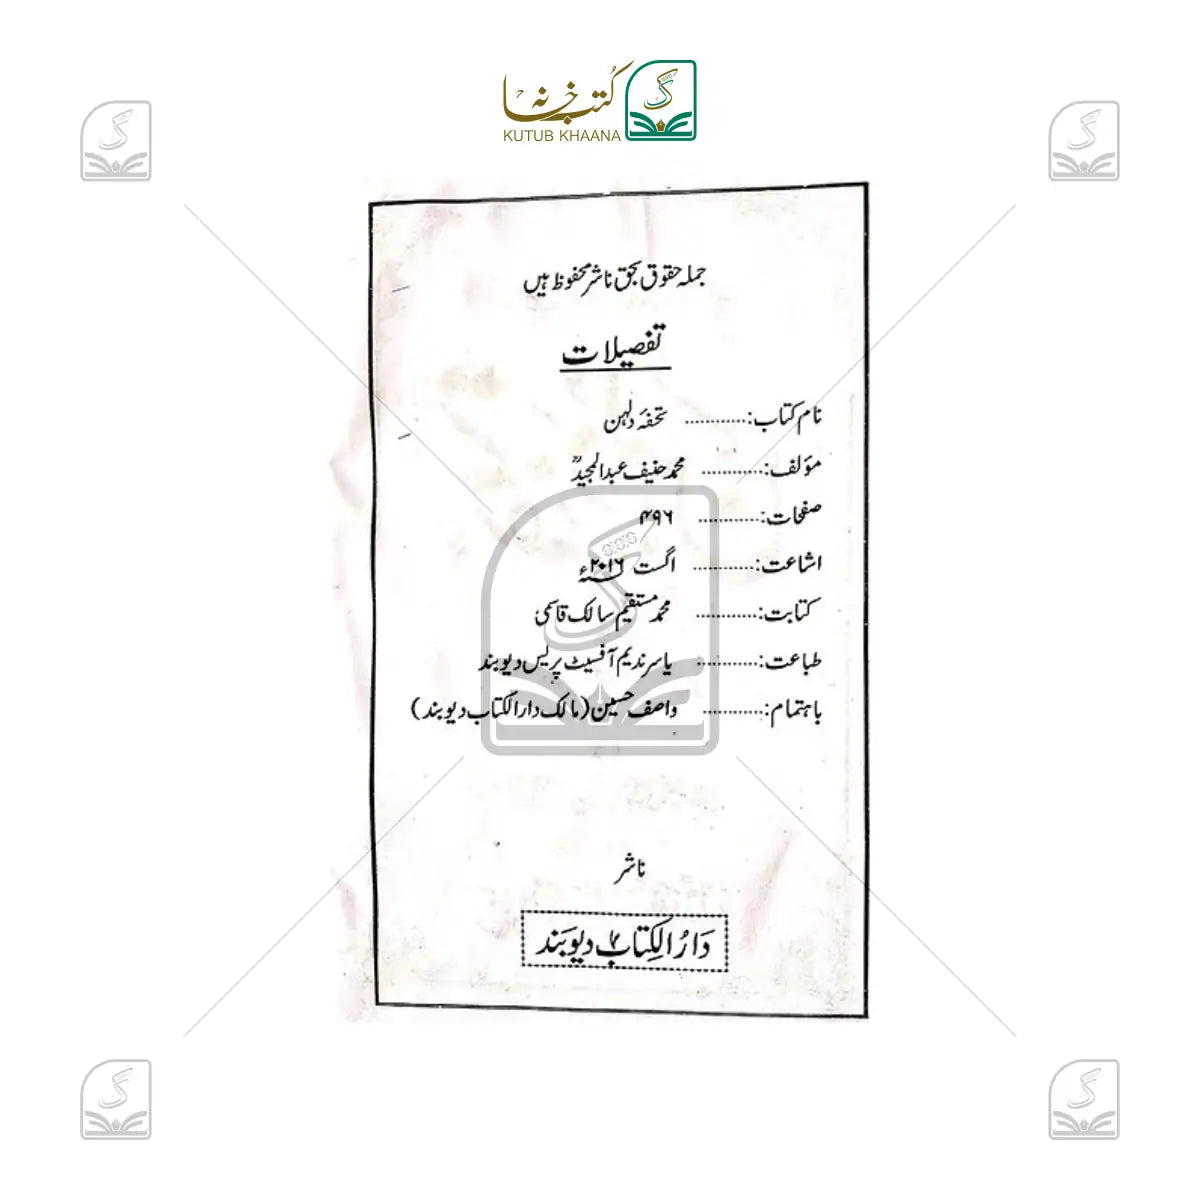 کتب خانہ
KUTUB KHAANA
جملہ حقوق بحق ناشر محفوظ ہیں
تفصیلات
نام کتاب:............ تحفۂ دلہن
مؤلف:............ محمد حنیف عبدالمجیدؒ
صفحات:............ ۴۹۶
اشاعت:............ اگست ۲۰۱۶ء
کتابت:............ محمد مستقیم سالک قاسمی
طباعت:............ یاسر ندیم آفسیٹ پریس دیوبند
باہتمام:............ واصف حسین (مالک دارالکتاب دیوبند)
ناشر
دَارُالکِتَابْ دیوبَند